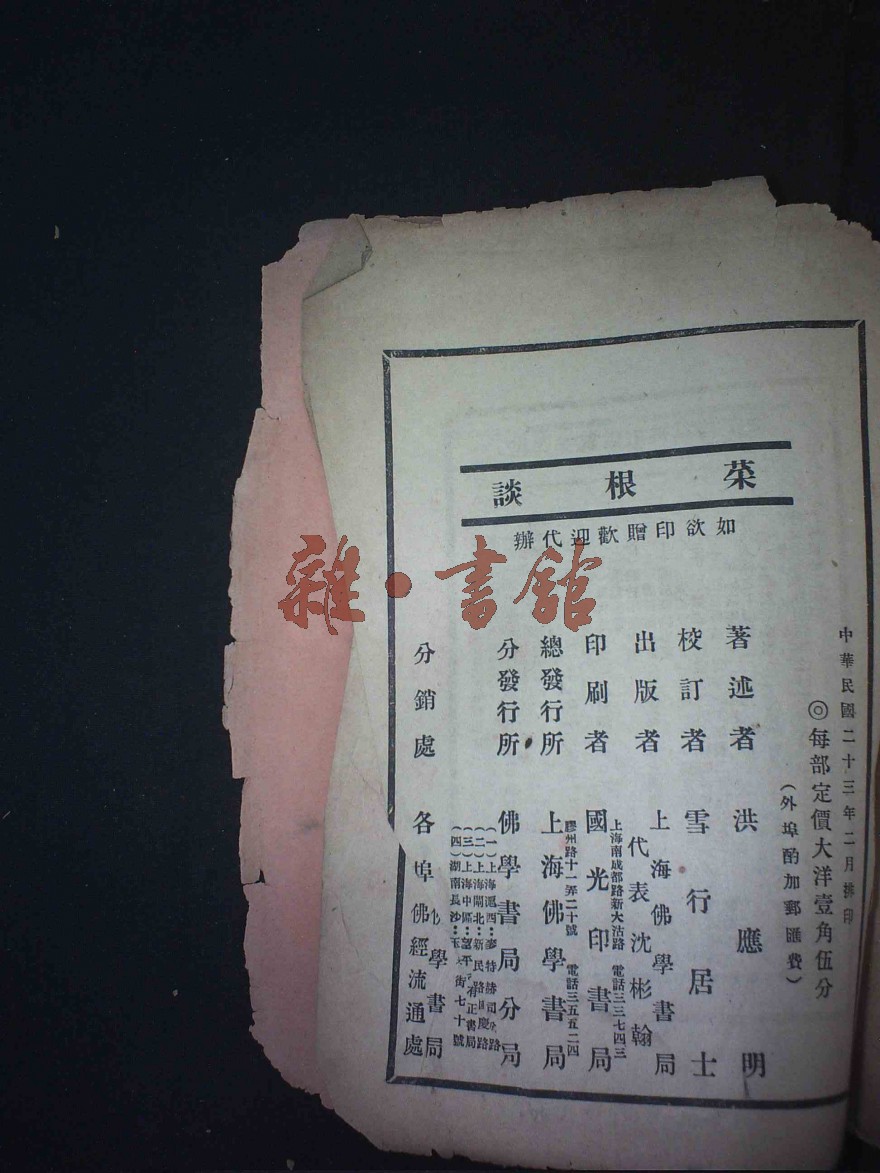 中華民國二十三年二月排印
◎每部定價大洋壹角伍分
(外埠酌加郵匯費)
菜根談
如欲印贈歡迎代辦
著述者 洪應明
校訂者 雪行居士
出版者 上海佛學書局
代表沈彬翰
印刷者 國光印書局
上海南成都路新大沽路 電話三三七四三
總發行所 上海佛學書局
膠州路十一弄二十號 電話三五五二四
分發行所 佛學書局分局
(一)上海滬西:麥特赫司路
(二)上海閘北:新民路國慶路
(三)上海中區:望平 有正書局
(四)湖南長沙:玉 街七十號
分銷處 各埠佛學書局
佛經流通處
雜·書館